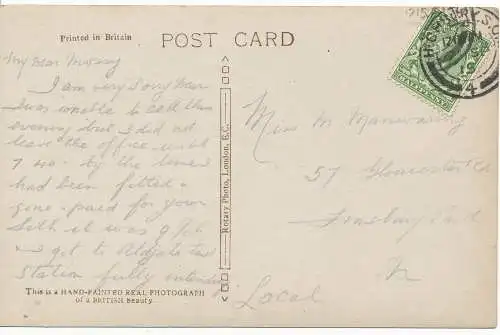 Printed in Britain
POST CARD
My Dear
I am very Sorry Dear
I was unable to call this
evening but I did not
leave the office until
7 40. by the time I
had been fitted &
gone paid for your
it was 9.
& I got to Aldgate East
Station fully intending
This is a HAND-PAINTED REAL PHOTOGRAPH
of a BRITISH Beauty.
Rotary Photo, London, E.C.
Miss M Manwaring
57 Gloucester Rd
Finsbury Park
N
Local
HALFPENNY
4